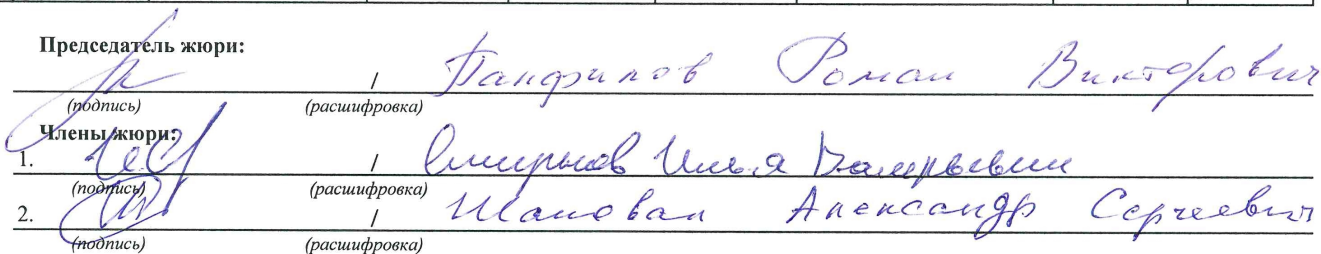 Председатель жюри:
/ Панфилов Роман Викторович
(подпись) (расшифровка)
Члены жюри:
1. / Смирнов Илья Валерьевич
(подпись) (расшифровка)
2. / Шаповал Александр Сергеевич
(подпись) (расшифровка)